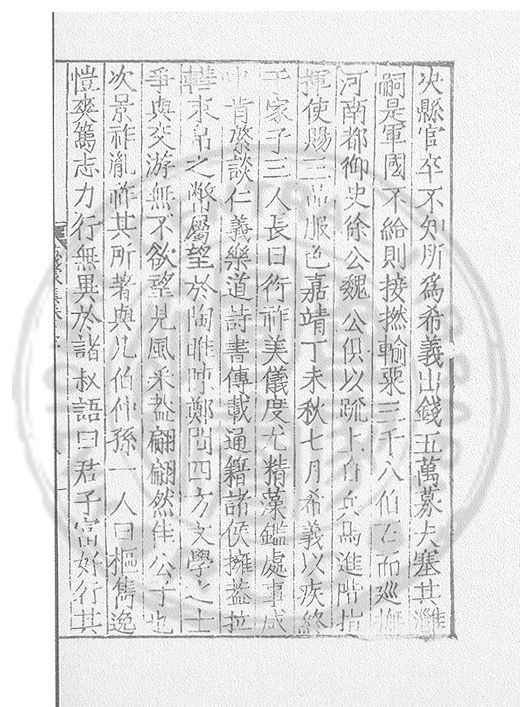 央縣官卒不知所為希義出錢五萬募夫塞其灘
嗣是軍國不給則接撫輸粟三千八伯石而巡撫
河南都御史徐公魏公俱以疏上自兵馬進階指
揮使賜三品服色嘉靖丁未秋七月希義以疾終
于家子三人長曰衍祚美儀度尤精藻鑑處事咸
中肯綮談仁義樂道詩書傳載通籍諸侯擁蓋拉
軿束帛之幣屬望於陶睢陳鄭間四方文學之士
爭與交游無不欲望見風釆盖翩翩然佳公子也
次景祚胤祚其所著與凡伯仲孫一人曰樞雋逸
愷爽篤志力行無異於諸叔語曰君子富好行其